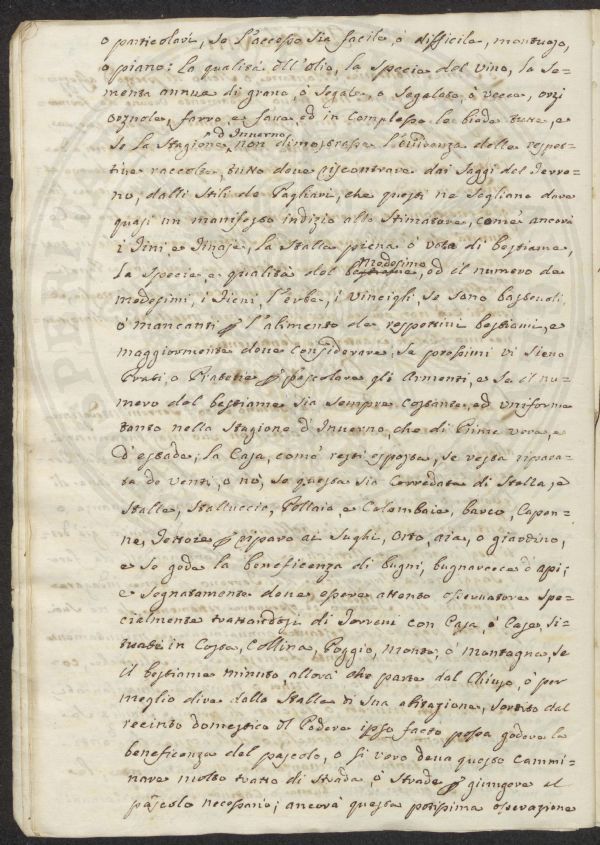 o particolari, se l'accesso sia facile, ò difficile, montuoso,
o piano: La qualità dell'olio, la specie del vino, la se=
menta annua di grano, ò segale, o segalato, o vecce, orzi
orgnole, farro, e fave, ed in complesso le biade tutte, e
se la stagione d'Inverno non dimostrasse l'evidenza delle respet=
tive raccolte, tutto deve riscontrare dai saggi del terre=
no, dalli stili de Pagliari, che questi ne sogliono dare
quasi un manifesto indizio allo stimatore, come ancora
i Tini, e Tinaje, la stalla piena ò vota di bestiame,
la specie, e qualità del medesimo, ed il numero de
medesimi, i fieni, l'erbe, i vincigli, se sono bastevoli,
ò mancanti p l'alimento de respettivi bestiami, e
maggiormente deve considerare, se prossimi vi sieno
Prati, o Praterie p pascolare gli Armenti, e se il nu=
mero del bestiame sia sempre costante, ed uniforme
tanto nella stagione d'Inverno, che di Prima vera, e
d'estate; la Casa, come resti esposta, se resta ripara=
ta da venti, o nò, se questa sia corredata di stalla, e
stalle, stalluccio, Pollaia, e Colombaie, barco, Capan=
ne, Tettoie p riparo ai sughi, orto, aia, o giardino,
e se gode la beneficenza di bugni, bugnerecce d'api;
e segnatamente deve essere attento osservatore spe=
cialmente trattandosi di Terreni con Casa, ò Case, si=
tuate in Costa, Collina, Poggio, Monte, ò montagna, se
il bestiame minuto, allora che parte dal Chiuso, ò per
meglio dire dalla stalla di sua abitazione, sortito dal
recinto domestico del Podere ipso facto possa godere la
beneficenza del pascolo, o si vero deva questo cammi=
nare molto tratto di strada, ò strade p giungere al
pascolo necessario; ancora questa potissima osservazione